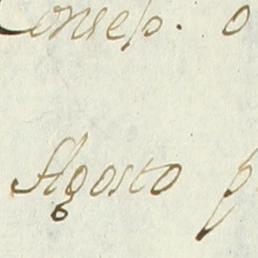 Consep. o
Agosto p